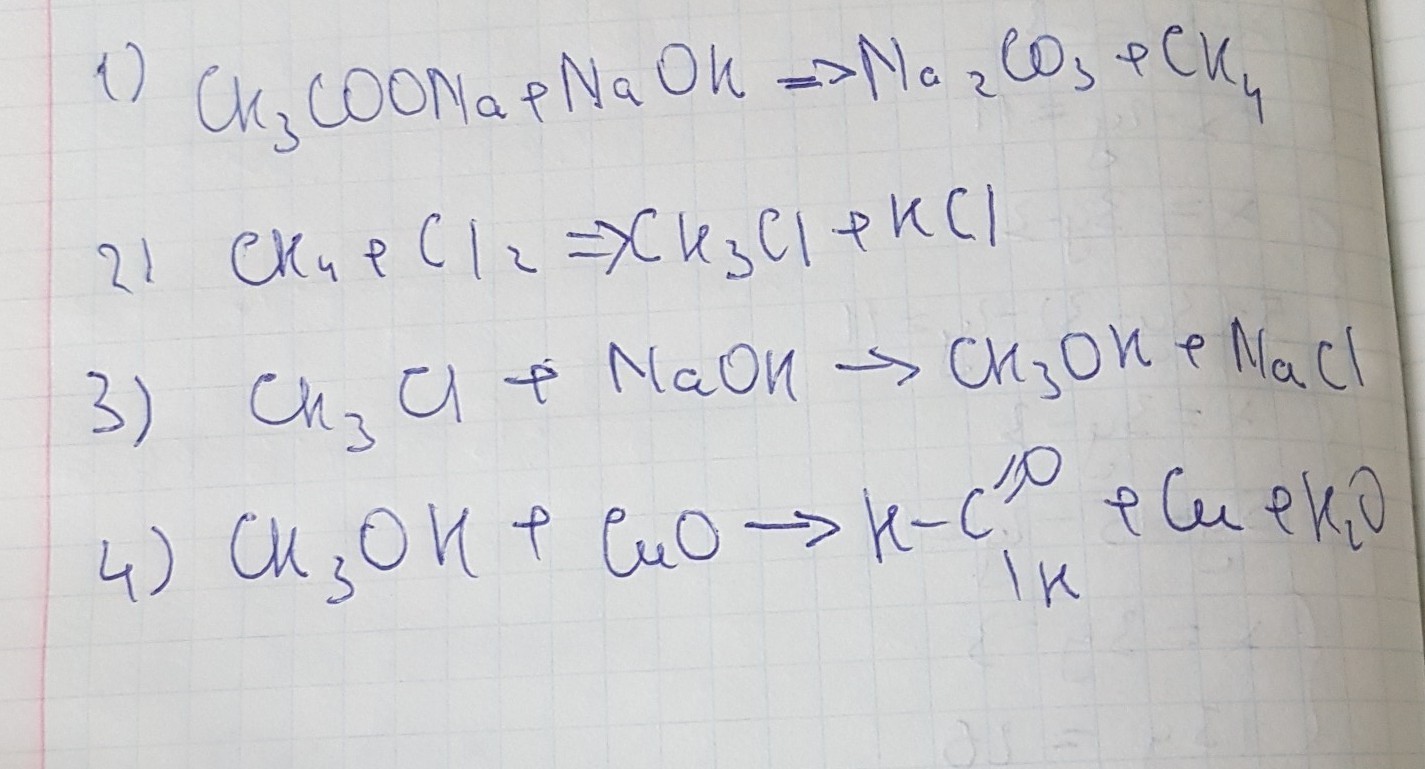 1) CH₃COONa + NaOH ⇒ Na₂CO₃ + CH₄
2) CH₄ + Cl₂ ⇒ CH₃Cl + HCl
3) CH₃Cl + NaOH → CH₃OH + NaCl
4) CH₃OH + CuO → H–C=O + Cu + H₂O
\H